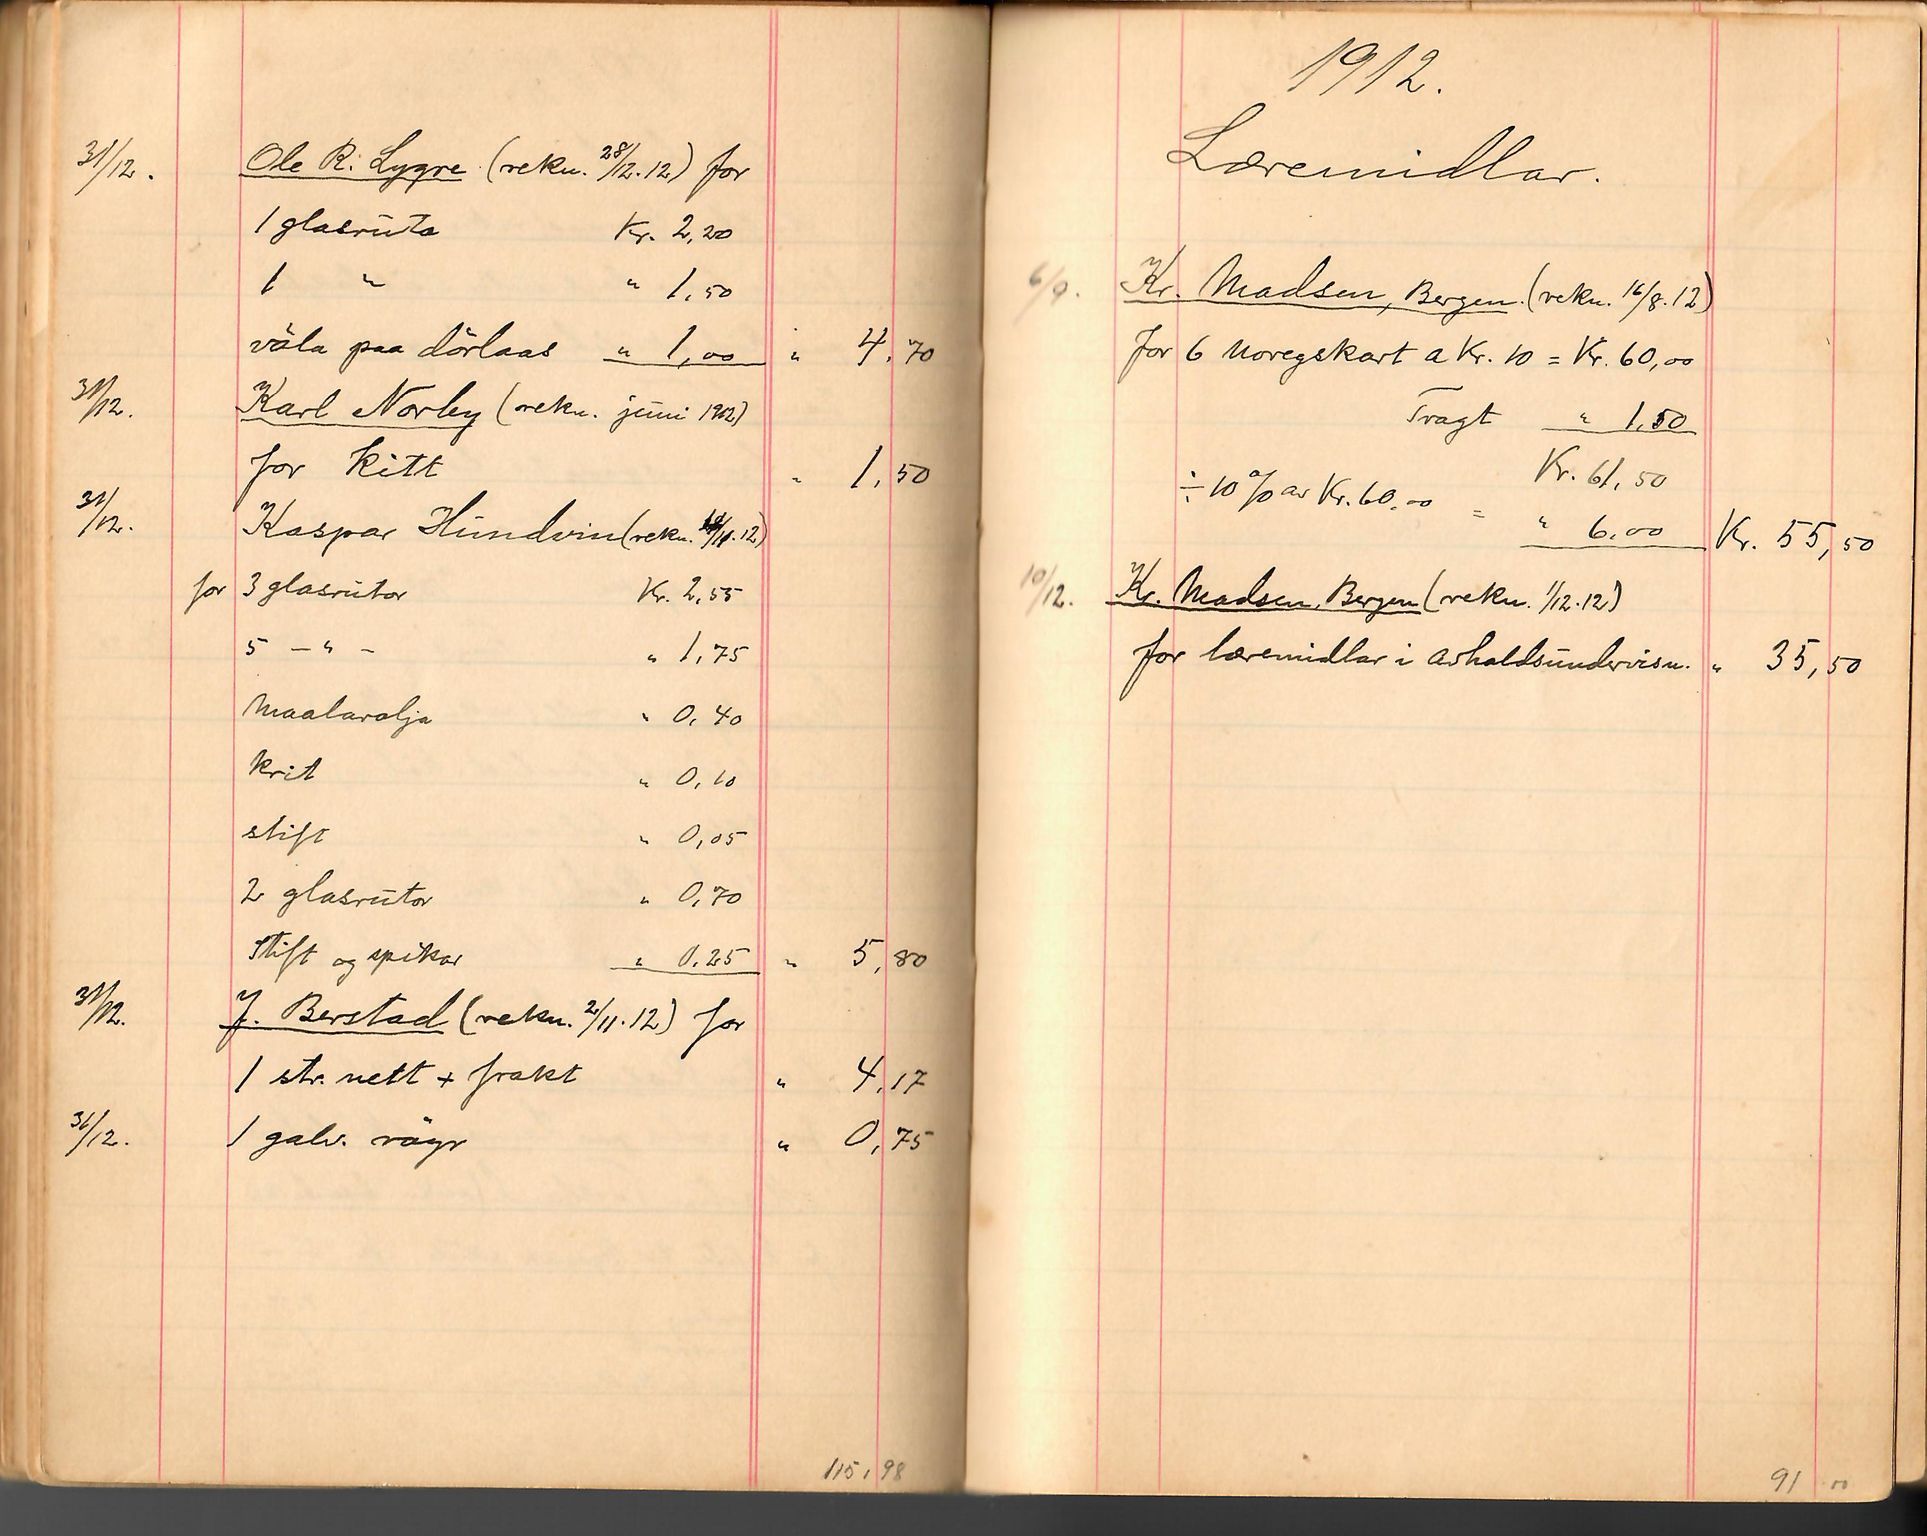 31/12. Ole R. Lygre (rekn. 28/12.12) for
1 glasruta Kr. 2,20
1 " " 1,50
våla paa dörlaas " 1,00 " 4,70
31/12. Karl Norley (rekn. juni 1912)
for kitt " 1,50
31/12. Kaspar Hundvin (rekn. /11.12)
for 3 glasrutor Kr. 2,55
5 - " - " 1,75
Maalaralja " 0,40
krit " 0,10
stift " 0,05
2 glasrutor " 0,70
Stift og spikar " 0,25 " 5,80
31/12. J. Berstad (rekn. 2/11.12) for
1 str. nett + frakt " 4,17
31/12. 1 galv. " 0,75
115,98
1912.
Læremidlar.
6/9. Kr. Madsen, Bergen. (rekn. 16/8.12)
for 6 Noregskart a Kr. 10 = Kr. 60,00
Fragt " 1,50
Kr. 61,50
÷ 10% av Kr. 60,00 = " 6,00 Kr. 55,50
10/12. Kr. Madsen, Bergen (rekn. 1/12.12)
for læremidlar i avhaldsundervisn. " 35,50
91 00